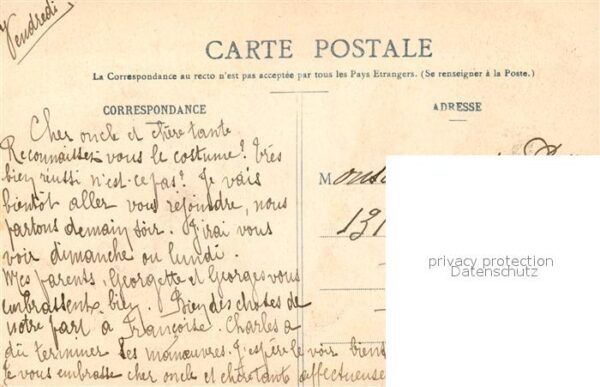 Vendredi
CARTE POSTALE
La Correspondance au recto n'est pas acceptée par tous les Pays Etrangers. (Se renseigner à la Poste.)
CORRESPONDANCE
Cher oncle et chère tante.
Reconnaissez vous le costume? très
bien réussi n'est-ce pas? Je vais
bientôt aller vous rejoindre, nous
partons demain soir. J'irai vous
voir dimanche ou lundi.
Mes parents, Georgette et Georges vous
embrassent bien. Bien des choses de
notre part à Françoise. Charles a
dû terminer ses manœuvres. J'espère le voir bient
Je vous embrasse cher oncle et chère tante affectueuse
ADRESSE
M
131
privacy protection
Datenschutz